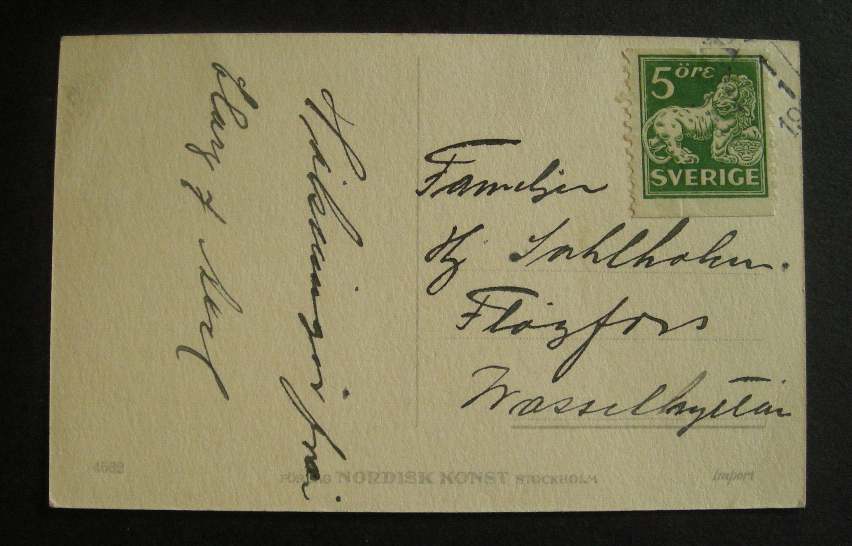 Hälsningar från
5 öre
SVERIGE
Familjen
Hj. Sahlholm.
Flögfors
Wasselhyttan
4689
FÖRLAG NORDISK KONST STOCKHOLM
Import